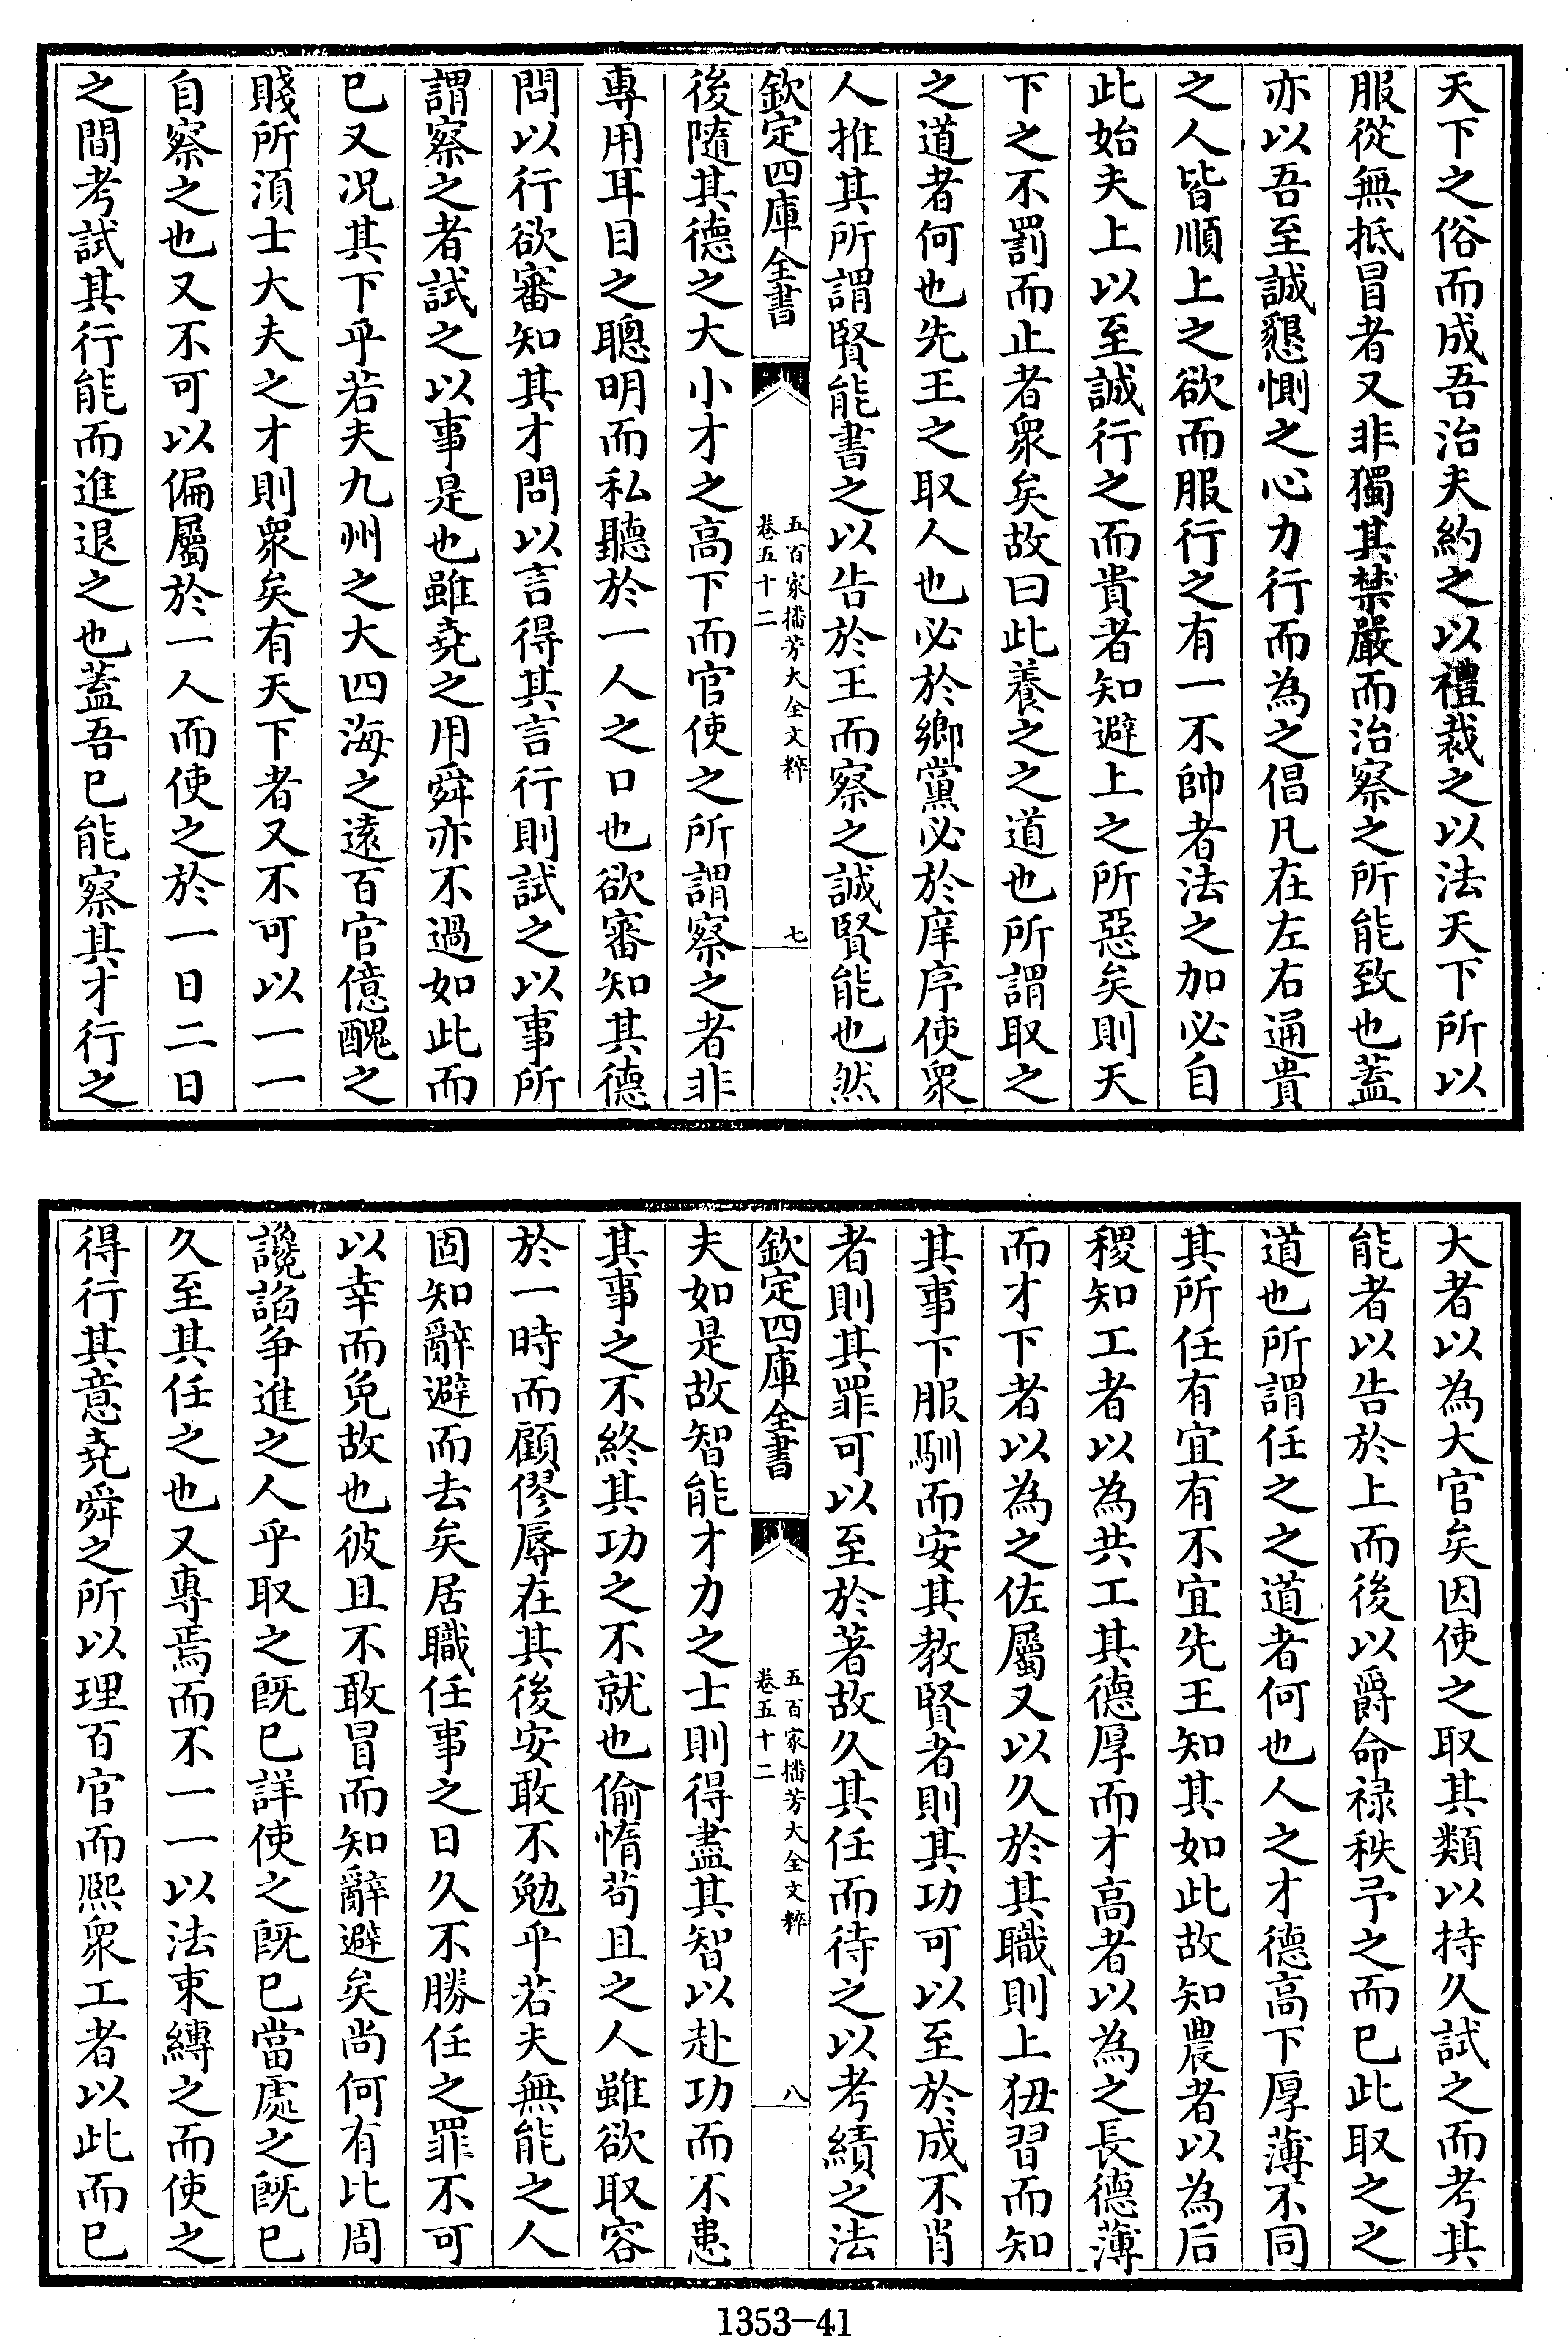 天下之俗而成吾治夫約之以禮裁之以法天下所以
服從無抵冒者又非獨其禁嚴而治察之所能致也蓋
亦以吾至誠懇惻之心力行而為之倡凡在左右通貴
之人皆順上之欲而服行之有一不帥者法之加必自
此始夫上以至誠行之而貴者知避上之所惡矣則天
下之不罰而止者衆矣故曰此養之之道也所謂取之
之道者何也先王之取人也必於鄉黨必於庠序使衆
人推其所謂賢能書之以告於王而察之誠賢能也然
欽定四庫全書
五百家播芳大全文粹
卷五十二
七
後隨其德之大小才之高下而官使之所謂察之者非
專用耳目之聰明而私聽於一人之口也欲審知其德
問以行欲審知其才問以言得其言行則試之以事所
謂察之者試之以事是也雖堯之用舜亦不過如此而
已又况其下乎若夫九州之大四海之遠百官億醜之
賤所湏士大夫之才則衆矣有天下者又不可以一一
自察之也又不可以偏屬於一人而使之於一日二日
之間考試其行能而進退之也蓋吾已能察其才行之
大者以為大官矣因使之取其類以持久試之而考其
能者以告於上而後以爵命禄秩予之而已此取之之
道也所謂任之之道者何也人之才德高下厚薄不同
其所任有宜有不宜先王知其如此故知農者以為后
稷知工者以為共工其德厚而才高者以為之長德薄
而才下者以為之佐屬又以久於其職則上狃習而知
其事下服馴而安其教賢者則其功可以至於成不肖
者則其罪可以至於著故久其任而待之以考績之法
欽定四庫全書
五百家播芳大全文粹
卷五十二
八
夫如是故智能才力之士則得盡其智以赴功而不患
其事之不終其功之不就也偷惰茍且之人雖欲取容
於一時而顧僇辱在其後安敢不勉乎若夫無能之人
固知辭避而去矣居職任事之日久不勝任之罪不可
以幸而免故也彼且不敢冒而知辭避矣尚何有比周
讒諂争進之人乎取之旣已詳使之旣已當處之旣已
久至其任之也又專焉而不一一以法束縛之而使之
得行其意堯舜之所以理百官而熙衆工者以此而已
1353-41